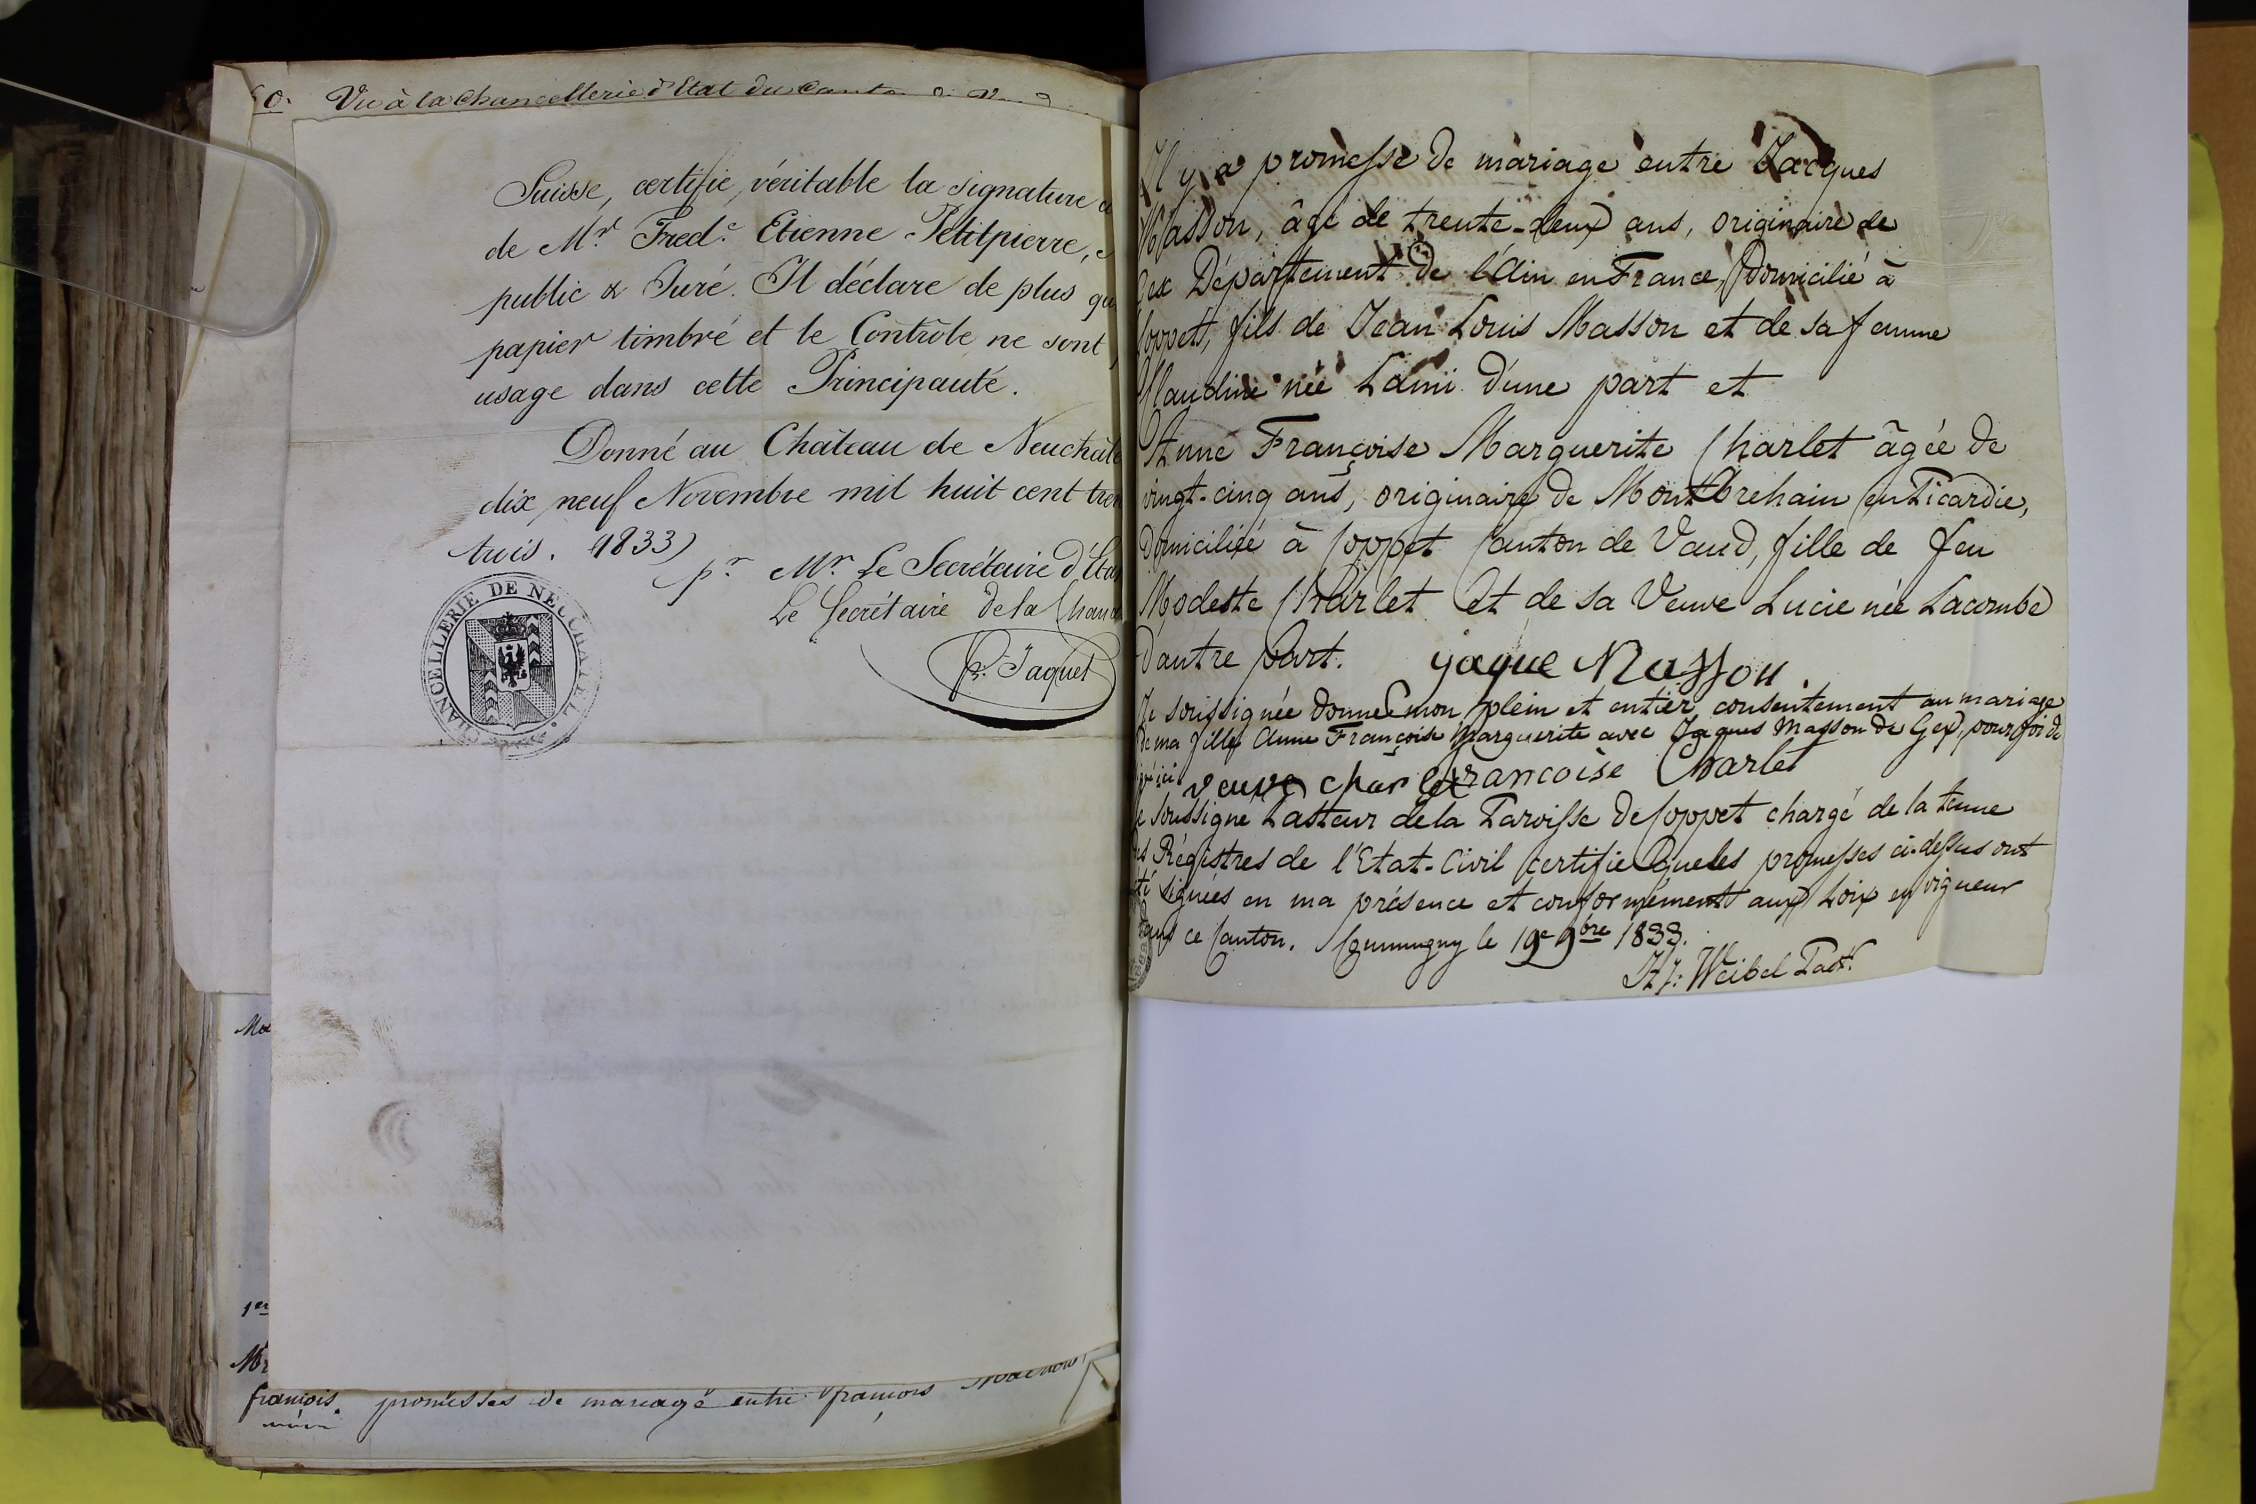 60. Vu à la Chancellerie d'Etat du Canton
Suisse, certifie véritable la signature
de Mr. Fred.c Etienne Petitpierre,
public & Juré. Il déclare de plus qu
papier timbré et le Contrôle ne sont
usage dans cette Principauté.
Donné au Château de Neuchâte
dix neuf Novembre mil huit cent tren
trois. (1833)
pr. Mr. Le Secrétaire d'Eta
Le Secrétaire de la Chanc
Jaquet
CHANCELLERIE DE NEUCHATEL.
Ma
1er
Mr
françois. promesses de mariage entre françois
Il y a promesse de mariage entre Jacques
Masson, âgé de trente-deux ans, originaire de
Gex Département de l'Ain en France, Domicilié à
Coppet, fils de Jean Louis Masson et de sa femme
Claudine née Lami d'une part et
Anne Françoise Marguerite Charlet âgée de
vingt-cinq ans, originaire de Montbrehain en Picardie,
Domiciliée à Coppet Canton de Vaud, fille de feu
Modeste Charlet et de sa Veuve Lucie née Lacombe
D'autre part. jaque Masson
Je soussignée donne mon plein et entier consentement au mariage
de ma fille Anne Françoise Marguerite avec Jaques Masson de Gex, pour foi de
ici veuve charlet francoise Charlet
Le Soussigné Pasteur de la Paroisse de Coppet chargé de la tenue
des Régistres de l'Etat-Civil certifie que les promesses ci-dessus ont
été signées en ma présence et conformément aux Loix en vigueur
dans ce Canton. Commugny le 19e 9bre 1833.
Weibel Past.